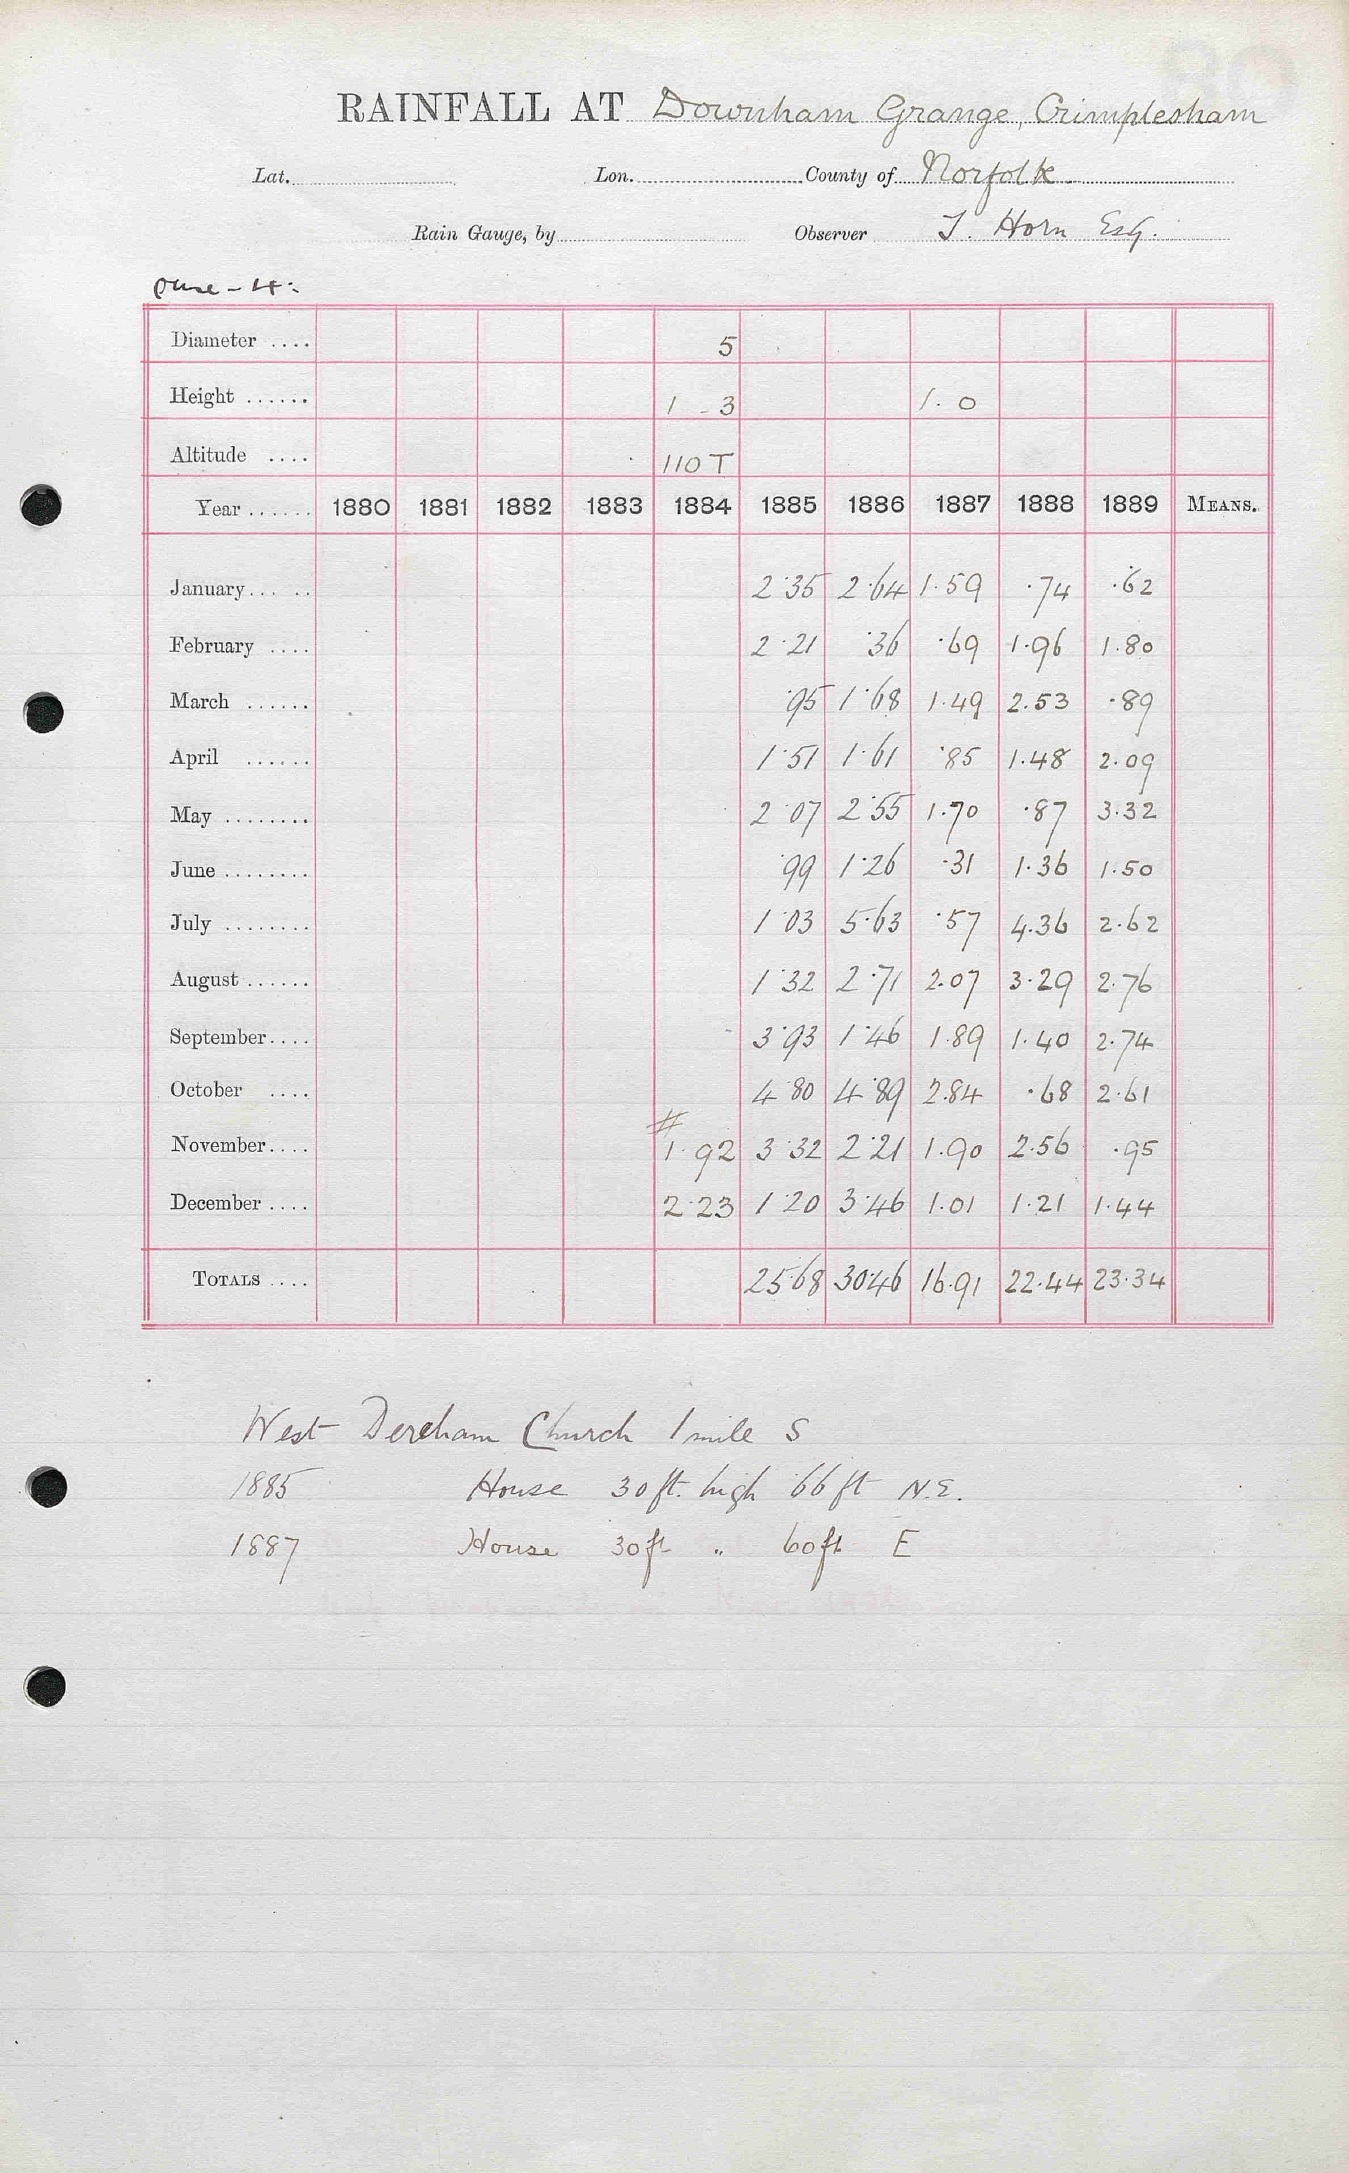 RAINFALL AT Downham Grange, Crimplesham
Lat. Lon. County of Norfolk.
Rain Gauge, by Observer T. Horn Esq.
Diameter .... 5
Height ...... 1 - 3 1. 0
Altitude .... 110 T
Year ...... 1880 1881 1882 1883 1884 1885 1886 1887 1888 1889 MEANS.
January... .. 2.35 2.64 1.59 .74 .62
February .... 2.21 .36 .69 1.96 1.80
March ...... .95 1.68 1.49 2.53 .89
April ...... 1.51 1.61 .85 1.48 2.09
May ........ 2.07 2.55 1.70 .87 3.32
June ........ .99 1.26 .31 1.36 1.50
July ........ 1.03 5.63 .57 4.36 2.62
August ...... 1.32 2.71 2.07 3.29 2.76
September.... 3.93 1.46 1.89 1.40 2.74
October .... 4.80 4.89 2.84 .68 2.61
#
November.... 1.92 3.32 2.21 1.90 2.56 .95
December .... 2.23 1.20 3.46 1.01 1.21 1.44
TOTALS .... 25.68 30.46 16.91 22.44 23.34
West Dereham Church 1 mile S
1885 House 30 ft. high 66 ft N.E.
1887 House 30 ft " 60 ft E